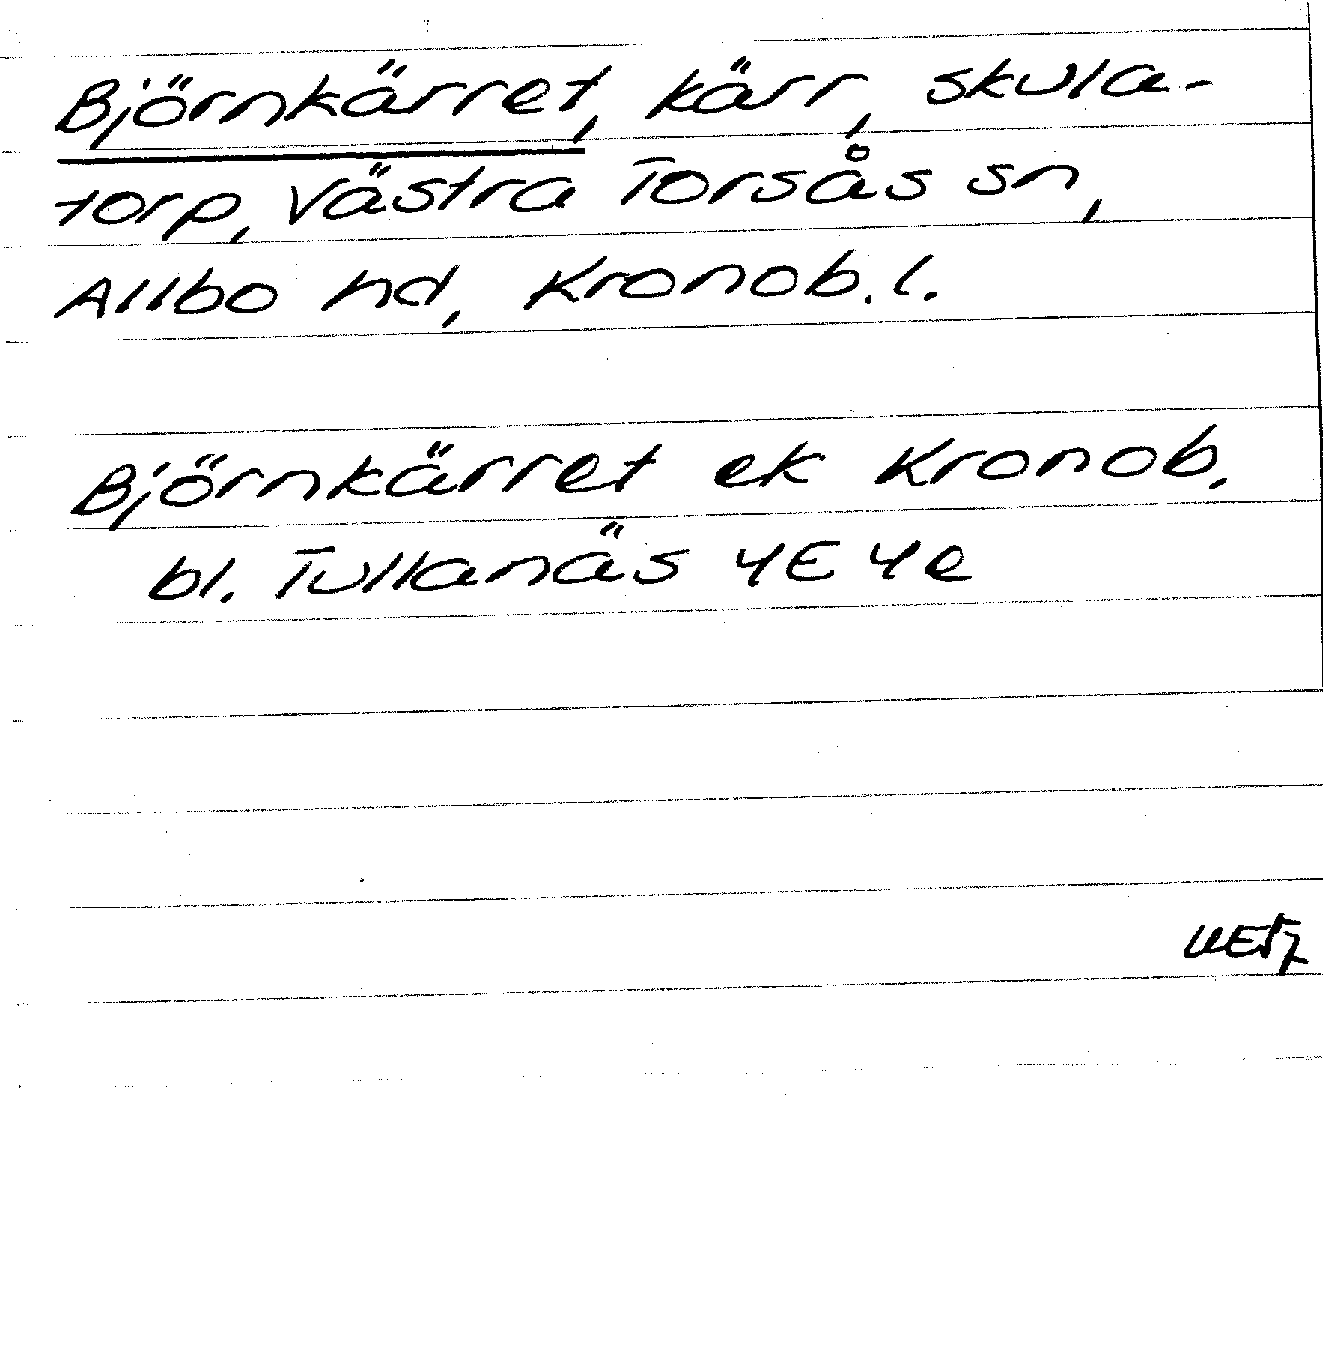 Björnkärret, kärr, Skula-
torp, Västra Torsås sn,
Allbo hd, Kronob. l.
Björnkärret ek Kronob.
bl. Tullanäs 4E 4e